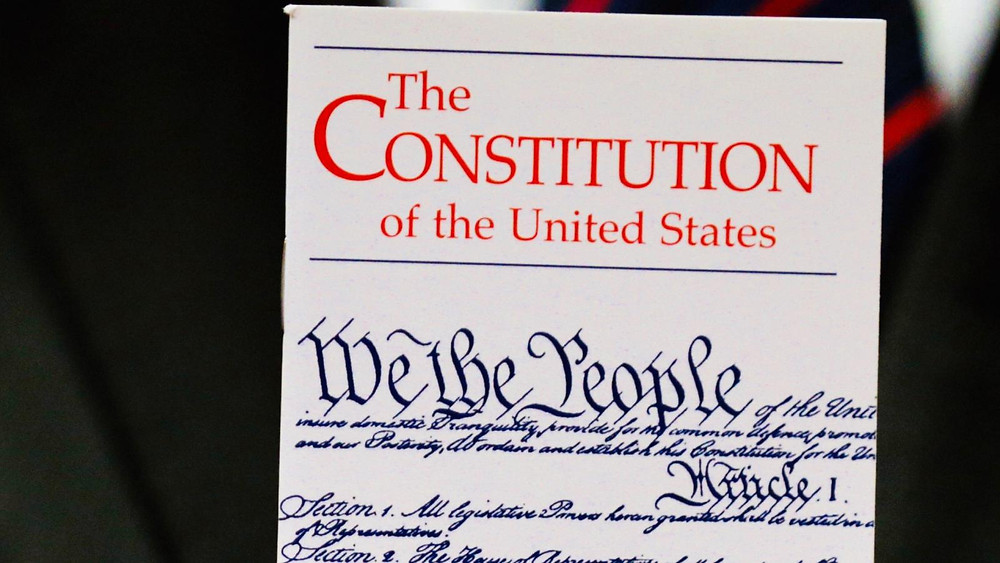 The
CONSTITUTION
of the United States
We the People of the Unit
insure domestic Tranquility, provide for the common defence, promot
and our Posterity, do ordain and establish this Constitution for the Un
Article. I.
Section. 1. All legislative Powers herein granted shall be vested in a
of Representatives.
Section. 2. The House of Representatives shall be